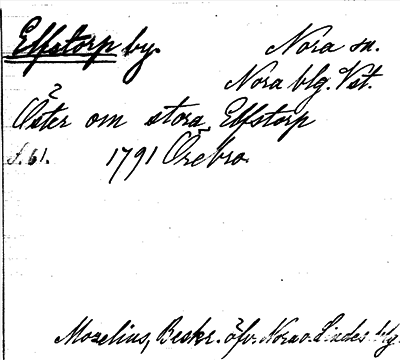 Elfstorp by.
Nora sn.
Nora blg. Vst.
Öster om stora Elfstorp
s. 61. 1791 Örebro.
Mozelius, Beskr. öfv. Nora o. Lindes blg.